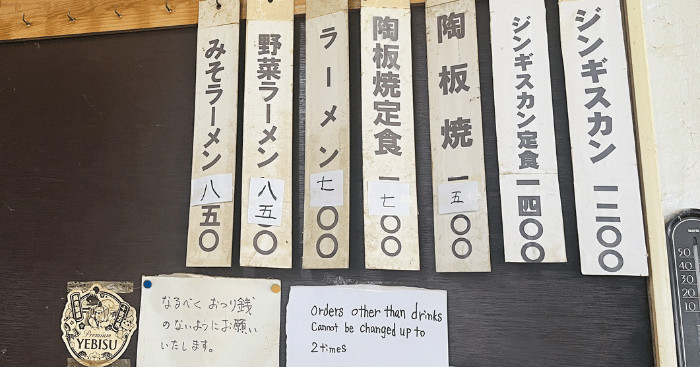 ジンギスカン 一二〇〇
ジンギスカン定食 一四〇〇
陶板焼 一五〇〇
陶板焼定食 一七〇〇
ラーメン 七〇〇
野菜ラーメン 八五〇
みそラーメン 八五〇
なるべく おつり銭
のないようにお願い
いたします。
Orders other than drinks
Cannot be changed up to
2 times
Premium
YEBISU
50
40
30
20
10